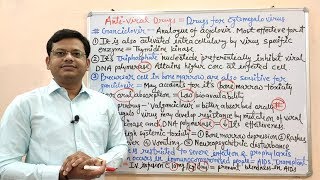 Anti-Viral Drugs = Drugs for Cytomegalo virus
# Ganciclovir - Analogue of acyclovir. Most effective for it
① It is also activated intracellularly by virus specific
enzyme = Thymidine kinase
② It's Triphosphate nucleotide preferentially inhibit viral
DNA polymerase. Attains higher conc at infected cell.
③ Precursor cell in bone marrow are also sensitive for
ganciclovir = May accounts for it's bone marrow toxicity
oral absorption = Low bioavailability
prodrug - valganciclovir = better absorbed orally
virus may develop resistance by mutation of viral
kinase and DNA polymerase - ↓ It's efficiency
high systemic toxicity - ① Bone marrow depression ② Rashes
④ Vomiting ⑤ Neuropsychiatric disturbance
restricted to severe infection & prophylaxis
occurs in immunocompromised people = AIDS, transplant
IV infusion
prevent blindness in AIDS